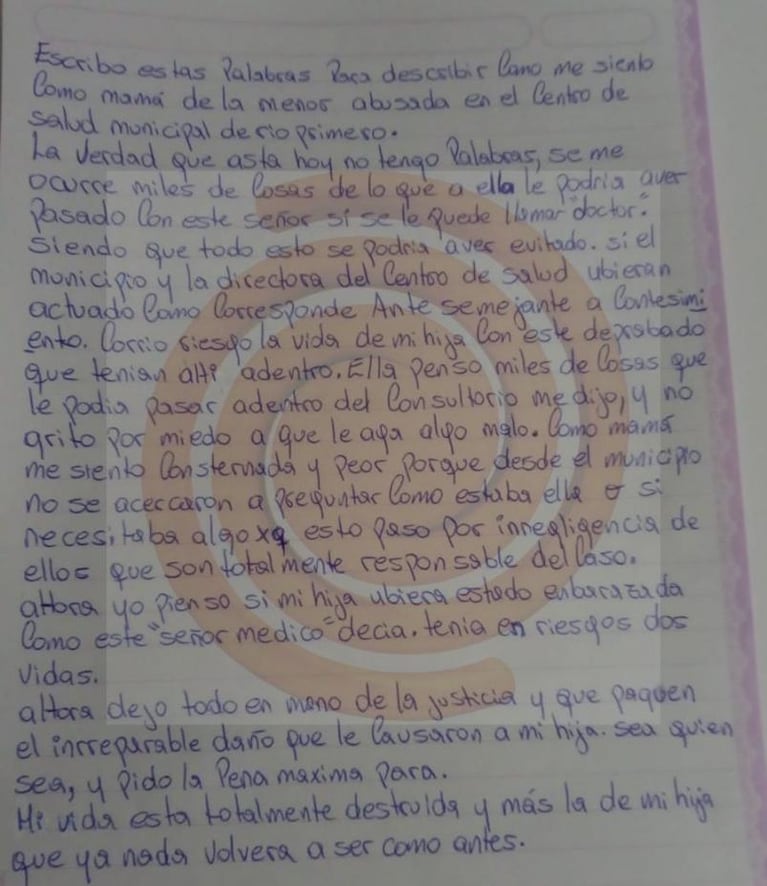 Escribo estas Palabras Para describir Como me siento
Como mamá de la menor abusada en el Centro de
salud municipal de rio primero.
La Verdad que asta hoy no tengo Palabras, se me
ocurre miles de Cosas de lo que a ella le podria aver
Pasado Con este señor si se le puede llamar "doctor".
Siendo que todo esto se podria aver evitado. si el
municipio y la directora del Centro de salud ubieran
actuado Como Corresponde Ante semejante a Contesimi
ento. Corrio riesgo la vida de mi hija Con este depravado
que tenian alli adentro. Ella Penso miles de Cosas que
le podia pasar adentro del Consultorio me dijo, y no
grito por miedo a que le aga algo malo. Como mamá
me siento Consternada y peor porque desde el municipio
no se acercaron a preguntar Como estaba ella o si
necesitaba algo xq esto paso por innegligencia de
ellos que son totalmente responsable del Caso.
aHora yo pienso si mi hija ubiera estado enbarazada
Como este "señor medico" decia. tenia en riesgos dos
vidas.
aHora dejo todo en mano de la justicia y que paguen
el incrreparable daño que le Causaron a mi hija. sea quien
sea, y Pido la Pena maxima para.
Mi vida esta totalmente destruida y más la de mi hija
que ya nada volvera a ser como antes.